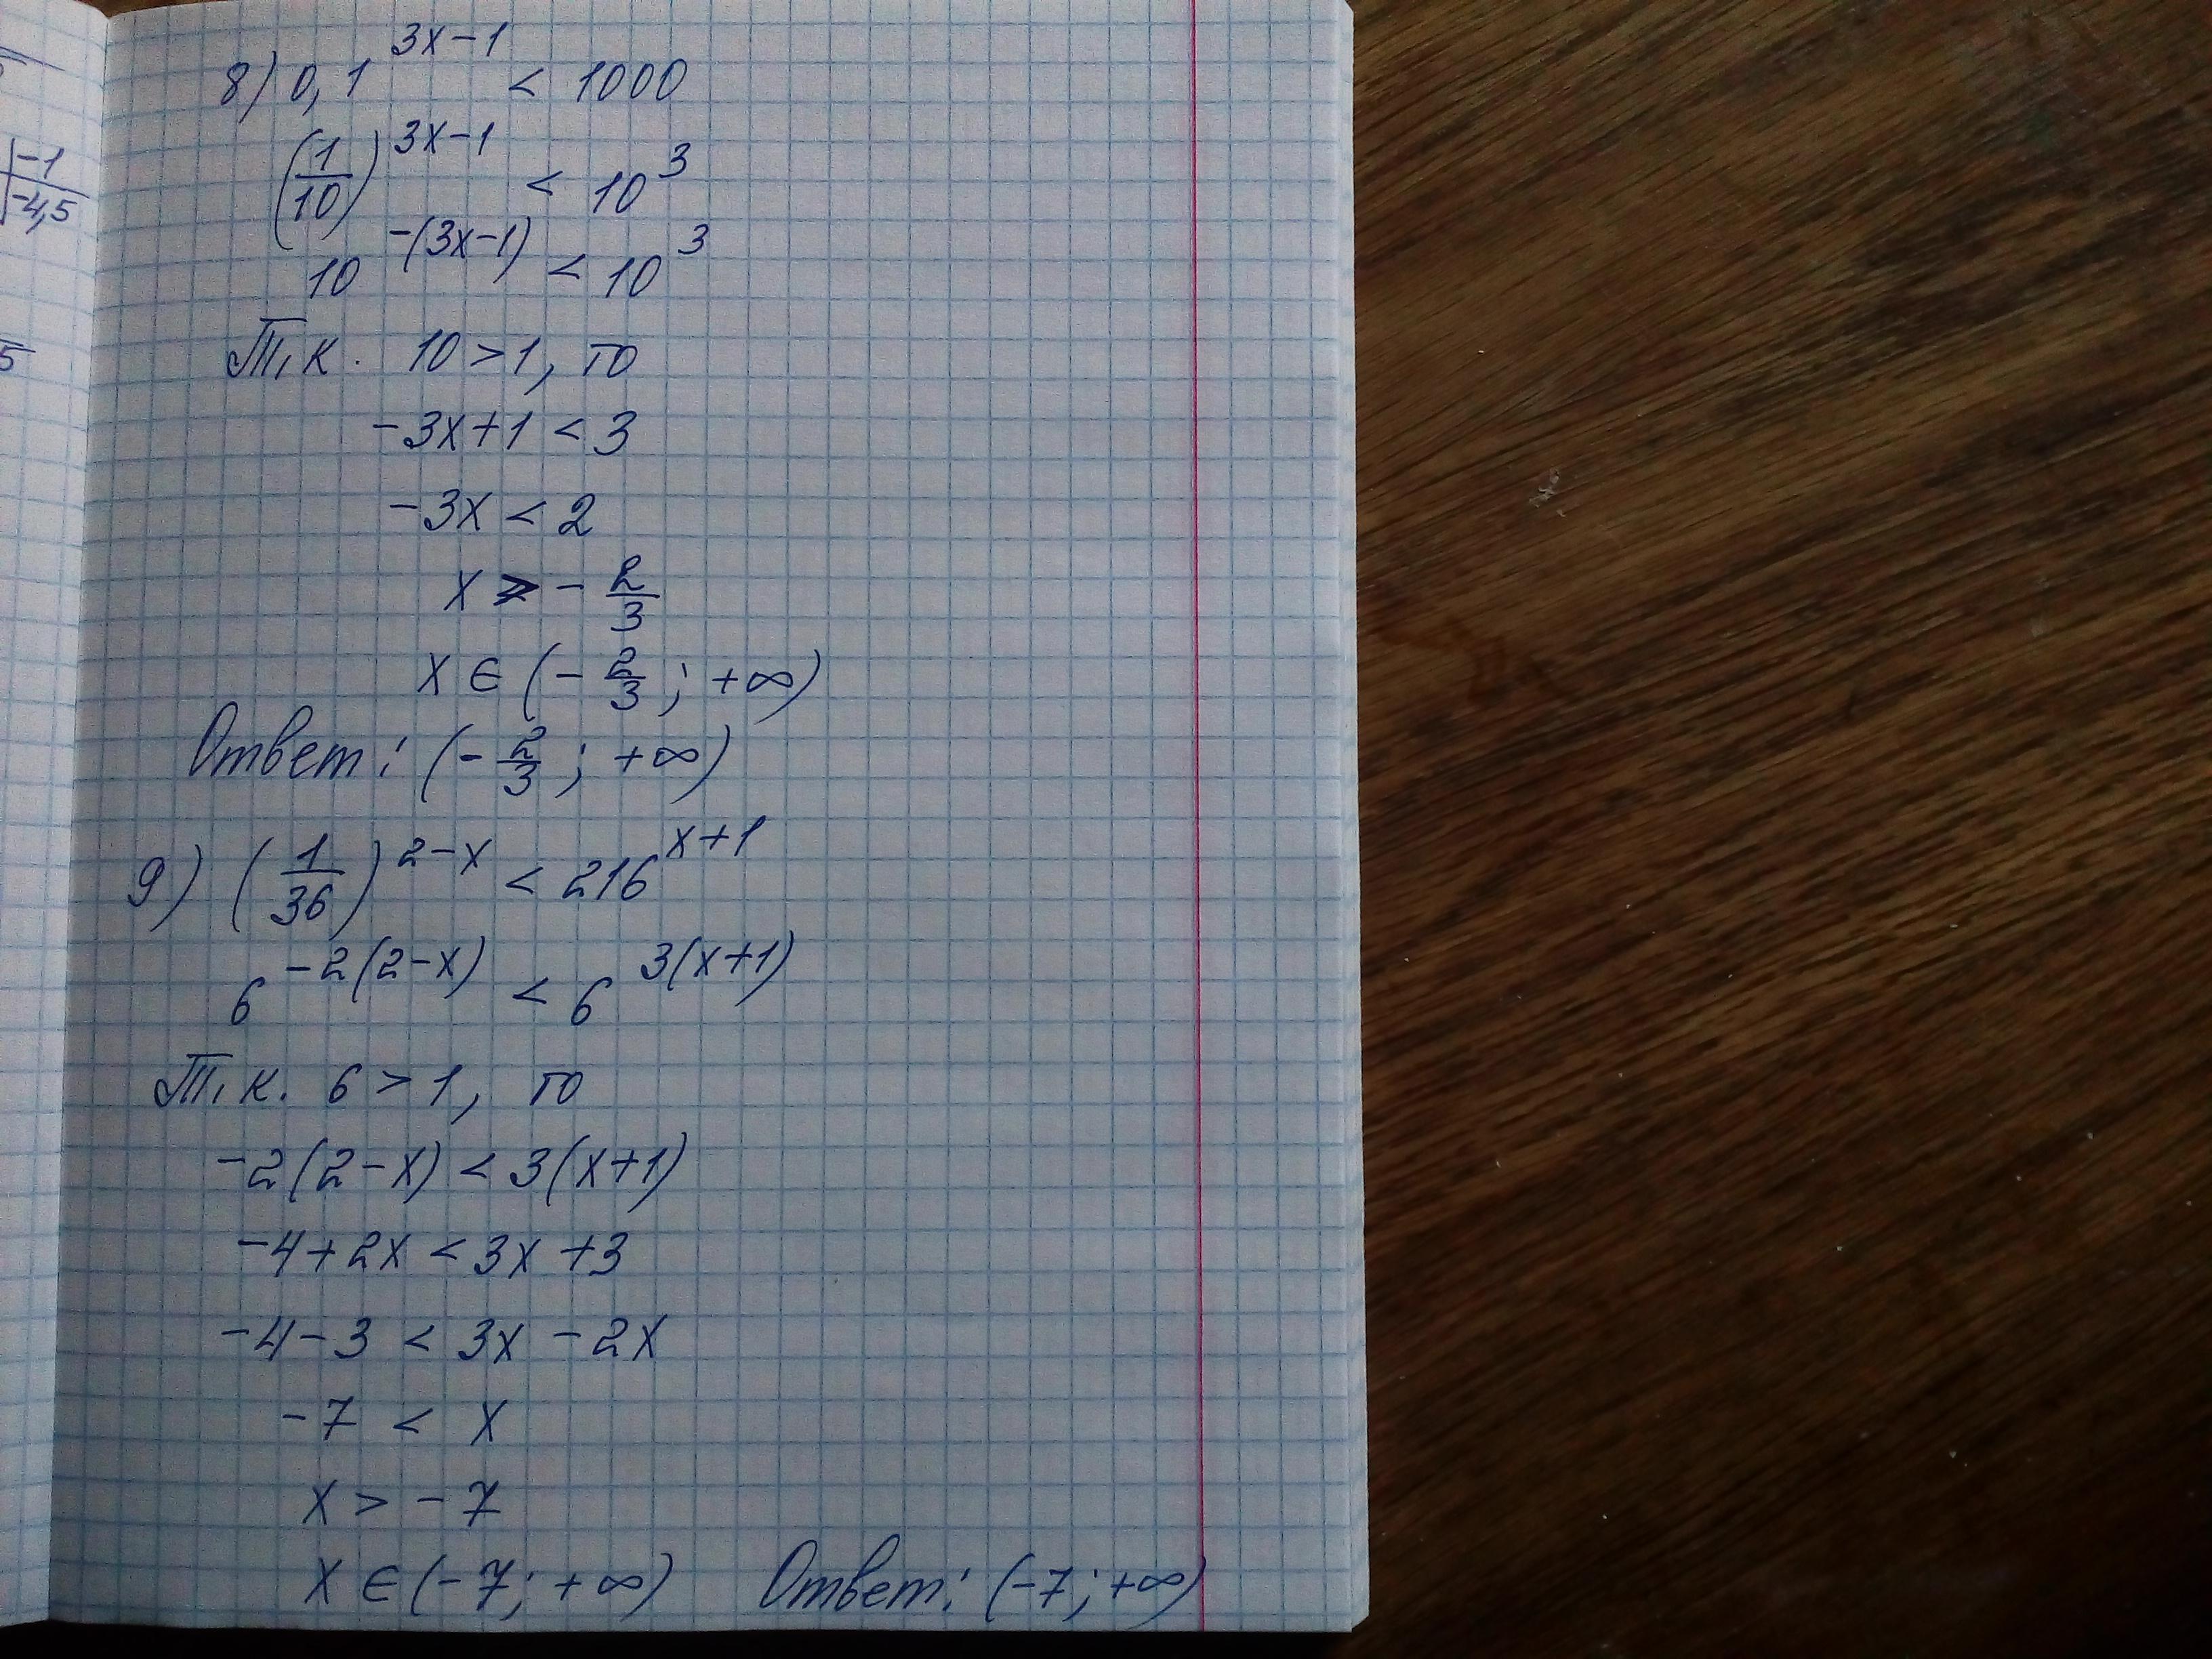 -1
-4,5
5
8) 0,1^(3x-1) < 1000
(1/10)^(3x-1) < 10^3
10^(-(3x-1)) < 10^3
Т.к. 10 > 1, то
-3x+1 < 3
-3x < 2
x > - 2/3
x ∈ (- 2/3 ; +∞)
Ответ: (- 2/3 ; +∞)
9) (1/36)^(2-x) < 216^(x+1)
6^(-2(2-x)) < 6^(3(x+1))
Т.к. 6 > 1, то
-2(2-x) < 3(x+1)
-4+2x < 3x+3
-4-3 < 3x-2x
-7 < x
x > -7
x ∈ (-7; +∞) Ответ: (-7; +∞)